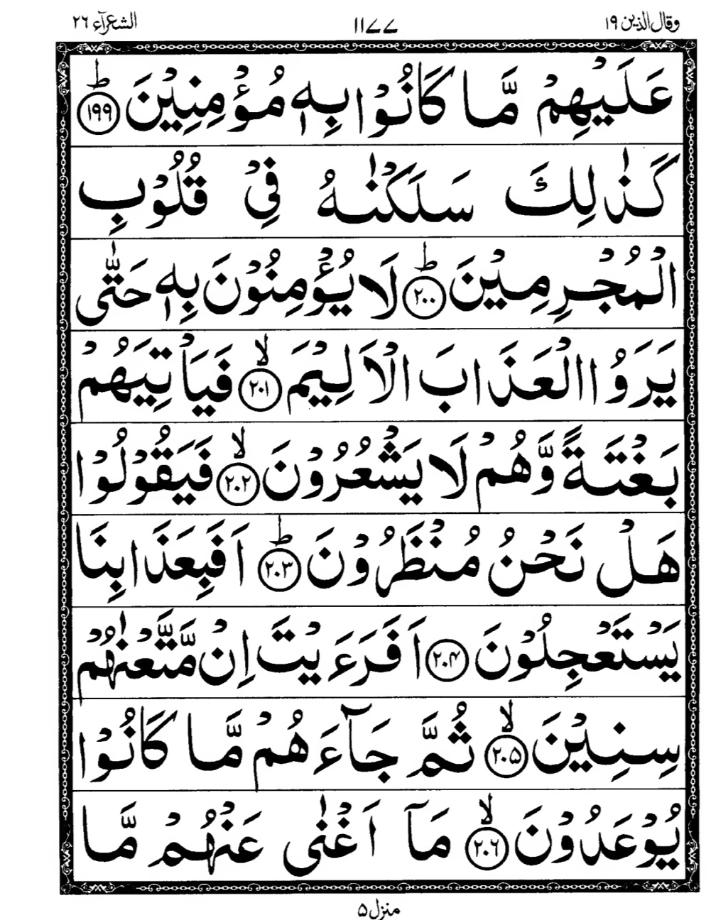 وقال الذين ١٩ ١١٧٧ الشعرآء ٢٦
عَلَيْهِمْ مَّا كَانُوْا بِهٖ مُؤْمِنِيْنَ ؕ ﴿١٩٩﴾
كَذٰلِكَ سَلَكْنٰهُ فِيْ قُلُوْبِ
الْمُجْرِمِيْنَ ؕ ﴿٢٠٠﴾ لَا يُؤْمِنُوْنَ بِهٖ حَتّٰى
يَرَوُا الْعَذَابَ الْاَلِيْمَ ۙ ﴿٢٠١﴾ فَيَاْتِيَهُمْ
بَغْتَةً وَّهُمْ لَا يَشْعُرُوْنَ ۙ ﴿٢٠٢﴾ فَيَقُوْلُوْا
هَلْ نَحْنُ مُنْظَرُوْنَ ؕ ﴿٢٠٣﴾ اَفَبِعَذَابِنَا
يَسْتَعْجِلُوْنَ ﴿٢٠۴﴾ اَفَرَءَيْتَ اِنْ مَّتَّعْنٰهُمْ
سِنِيْنَ ۙ ﴿٢٠۵﴾ ثُمَّ جَآءَهُمْ مَّا كَانُوْا
يُوْعَدُوْنَ ۙ ﴿٢٠٦﴾ مَاۤ اَغْنٰى عَنْهُمْ مَّا
منزل ۵